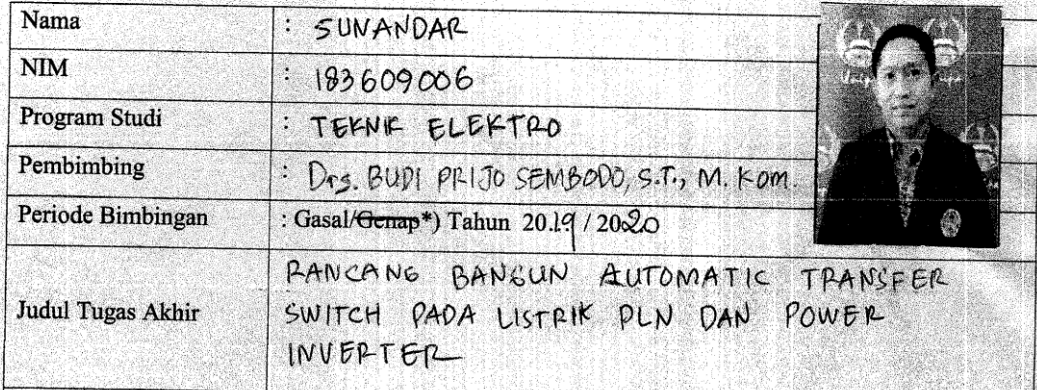 Nama : SUNANDAR
NIM : 183609006
Program Studi : TEKNIK ELEKTRO
Pembimbing : Drs. BUDI PRIJO SEMBODO, S.T., M. Kom.
Periode Bimbingan : Gasal/Genap*) Tahun 2019 / 2020
Judul Tugas Akhir : RANCANG BANGUN AUTOMATIC TRANSFER
SWITCH PADA LISTRIK PLN DAN POWER
INVERTER